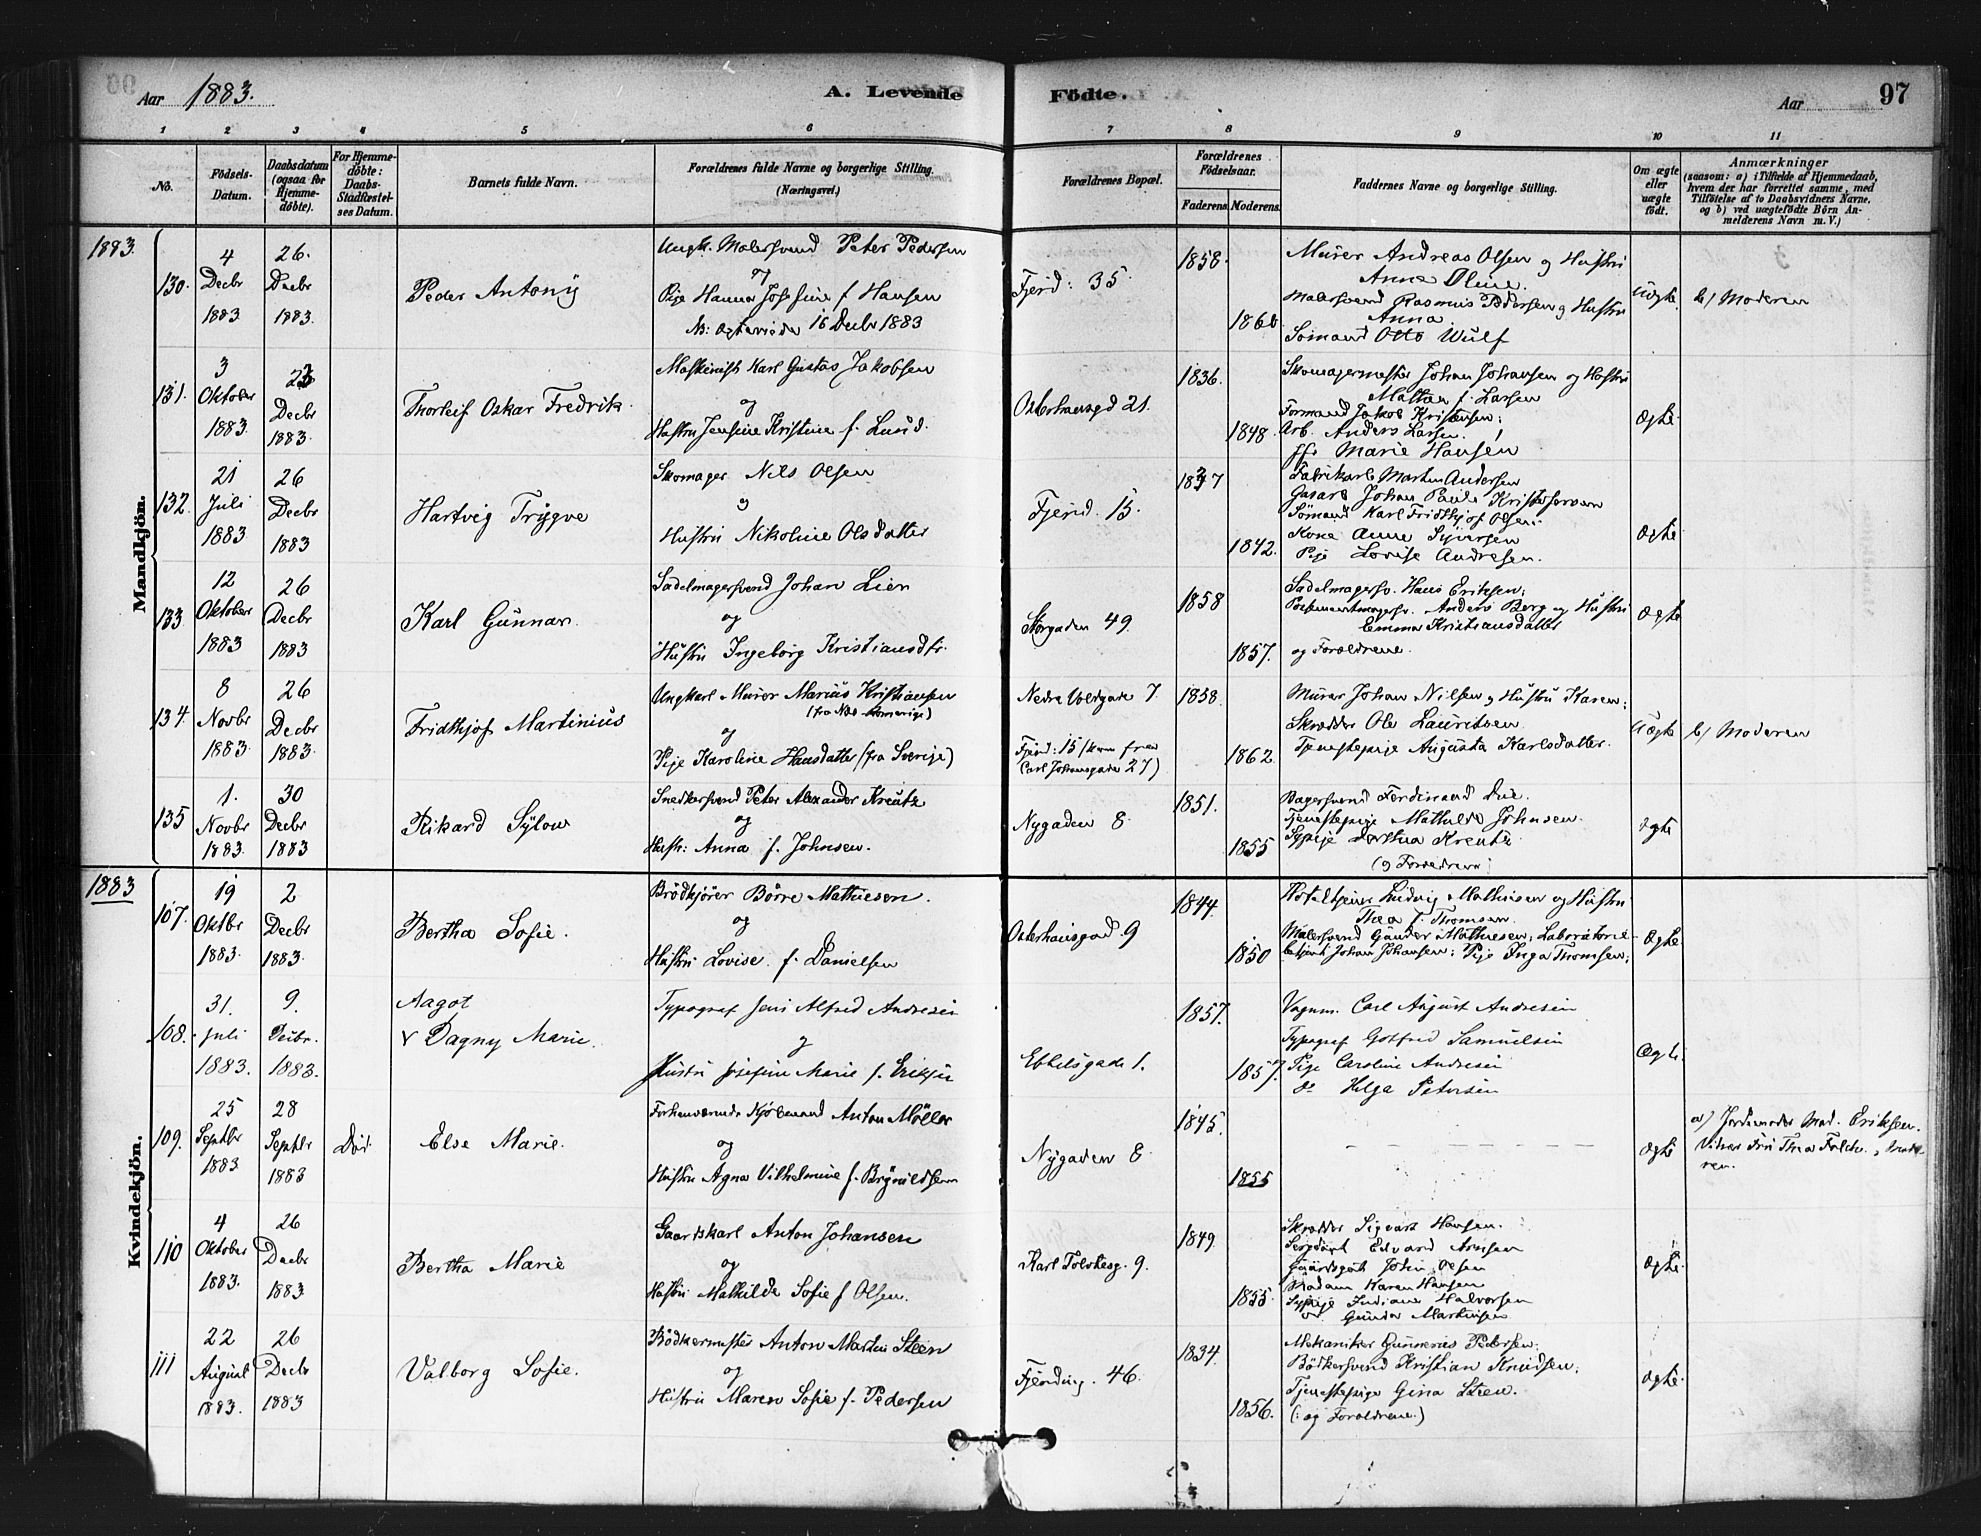 Aar 1883.
A. Levende Födte.
Aar
97
1 2 3 4 5 6 7 8 9 10 11
No.
Födsels-Datum.
Daabsdatum (ogsaa for Hjemme-döbte).
For Hjemme-döbte: Daabs-Stadfæstel-ses Datum.
Barnets fulde Navn.
Forældrenes fulde Navne og borgerlige Stilling. (Næringsvei.)
Forældrenes Bopæl.
Forældrenes Födselsaar.
Faderens. Moderens.
Faddernes Navne og borgerlige Stilling.
Om ægte eller uægte födt.
Anmærkninger
(saasom: a) i Tilfælde af Hjemmedaab, hvem der har forrettet samme, med Tilföielse af to Daabsvidners Navne. og b) ved uægtefödte Börn An-melderens Navn m. V.)
Mandkjön.
1883.
130.
4 Decbr 1883
26. Decbr 1883.
Peder Antoni
Ungk. Malersvend Peter Pedersen
og
Pige Hanna Josefine f. Hansen
16 Decbr 1883
Fjerd: 35
1858.
1860
Murer Andreas Olsen og Hustru
Anna Oline.
Malersvend Rasmus Pedersen og Hustru
Anna
Sömand Otto Wulf
Uægte
b/ Moderen
131.
3 Oktober 1883.
23 Decbr 1883.
Thorleif Oskar Fredrik.
Maskinist Karl Gustav Jakobsen
og
Hustru Jensine Kristine f. Lund.
Osterhausgd 21.
1836.
1848.
Skomagermester Johan Johansen og Hustru
Mathea f. Larsen
Formand Jakob Kristensen;
Arb. Anders Larsen.
Marie Hansen
Ægte.
132.
21 Juli 1883
26 Decbr 1883
Hartvig Trygve
Skomager Nils Olsen
og
Hustru Nikoline Olsdatter
Fjerd. 15.
1837
1842.
Fabrikarb. Martin Andersen
Johan Paul Kristoffersen
Sömand Karl Fridthjof Olsen.
Kone Anne Syversen
Pige Lovise Andresen.
Ægte
133
12 Oktober 1883
26 Decbr 1883
Karl Gunnar.
Sadelmagersvend Johan Lien
og
Hustru Ingeborg Kristiansdtr.
Storgaden 49.
1858
1857.
Sadelmagersv. Hans Eriksen;
Anders Berg og Hustru
Emma Kristiansdatter
og Forældrene.
Ægte
134.
8 Novbr 1883
26 Decbr 1883.
Fridthjof Martinius
Ungkarl Murer Marius Kristiansen
og
Pige Karoline Hansdatter (fra Sverige)
Nedre Voldgade 7
Fjerd: 15 (kom fra
Carl Johansgade 27)
1858.
1862
Murer Johan Nilsen og Hustru Karen;
Skrædder Ole Lauritsen
Tjenestepige Augusta Karlsdatter.
Uægte
b/ Moderen
135
1. Novbr 1883.
30 Decbr 1883
Rikard Sylow
Snedkersvend Peter Alexander Kreutz
og
Hustr: Anna f. Johnsen.
Nygaden 8.
1851.
1855
Bagersvend Ferdinand Due.
Tjenestepige Mathilde Johnsen.
Sypige Dorthea Kreutz
(og Forældrene)
Ægte
Kvindekjön.
1883
107.
19 Oktbr 1883.
2 Decbr 1883.
Bertha Sofie.
Brödkjörer Börre Mathiesen.
og
Hustru Lovise. f. Danielsen
Osterhausgad 9
1844.
1850
Hotelltjener Ludvig Mathiesen og Hustru
Thea f. Thomsen.
Malersvend Gunder Mathiesen, Laboratorie-
betjent Johan Johansen; Pige Inga Thomsen;
Ægte
108.
31. Juli 1883.
9. Decbr. 1883.
Aagot
v Dagny Marie.
Typograf Jens Alfred Andresen
og
Hustru Josefine Marie f. Eriksen
Ettelsgade 1.
1857.
1857.
Vognm. Carl August Andresen
Typograf Gotfred Samuelsen
Pige Caroline Andresen
do Helga Petersen
Ægte.
109.
25 Septbr 1883
28 Septbr 1883
Död.
Else Marie.
Forhenværende Kjöbmand Anton Möller
og
Hustru Agna Vilhelmine f. Brynildsen
Nygaden 8.
1845.
1855
Ægte
a/ Jordemoder Mad. Eriksen.
110
4 Oktober 1883.
26 Decbr 1883
Bertha Marie
Gaardskarl Anton Johansen
og
Hustru Mathilde Sofie f Olsen.
Karl Tolvtesg. 9.
1849
1855.
Skrædder Sigvart Hansen.
Sergeant Edvard Arnsen
Madam Karen Hansen
Sypige Indiane Halvorsen
Gunda Martinsen
Ægte.
111
22 August 1883.
26 Decbr 1883
Valborg Sofie.
Bödkermester Anton Martin Steen
og
Hustru Maren Sofie f. Pedersen
Fjerding. 46.
1834.
1856.
Mekaniker Gunnerius Pedersen;
Bödkersvend Kristian Knudsen;
Tjenestepige Gina Steen.
(: og Forældrene.)
Ægte.